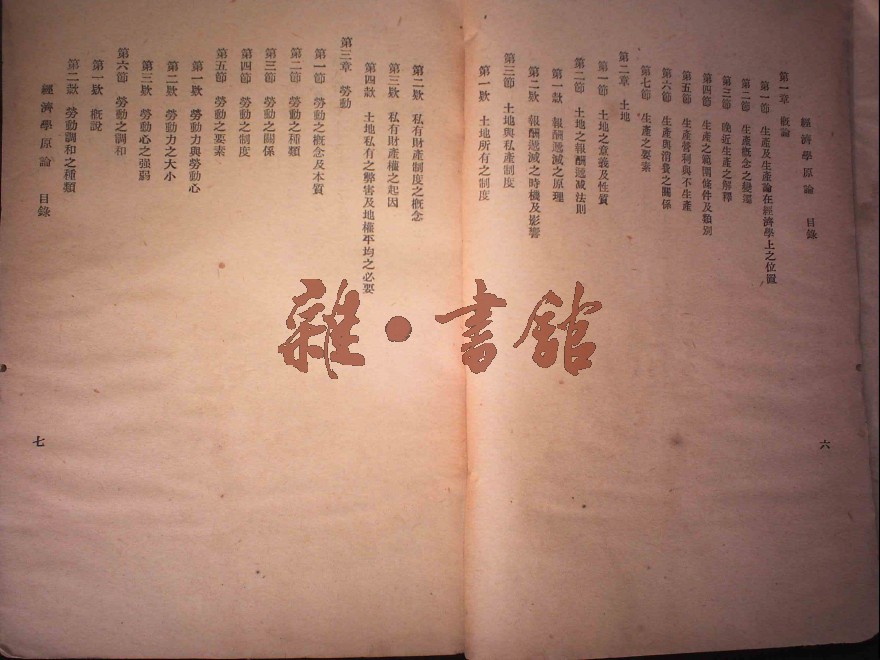 經濟學原論 目錄
第一章 概論
第一節 生產及生產論在經濟學上之位置
第二節 生產概念之變遷
第三節 晚近生產之解釋
第四節 生產之範圍條件及類別
第五節 生產營利與不生產
第六節 生產與消費之關係
第七節 生產之要素
第二章 土地
第一節 土地之意義及性質
第二節 土地之報酬遞减法則
第一欵 報酬遞减之原理
第二欵 報酬遞减之時機及影響
第三節 土地與私產制度
第一欵 土地所有之制度
六
第二欵 私有財產制度之概念
第三欵 私有財產權之起因
第四欵 土地私有之弊害及地權平均之必要
第三章 勞動
第一節 勞動之概念及本質
第二節 勞動之種類
第三節 勞動之關係
第四節 勞動之制度
第五節 勞動之要素
第一欵 勞動力與勞動心
第二欵 勞動力之大小
第三欵 勞動心之强弱
第六節 勞動之調和
第一欵 概說
第二欵 勞動調和之種類
經濟學原論 目錄
七
雜·書館